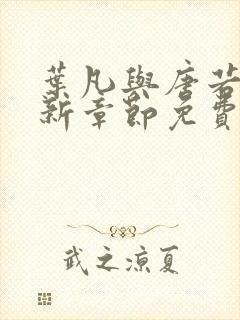 葉凡與唐若
新章節免費
武之涼夏